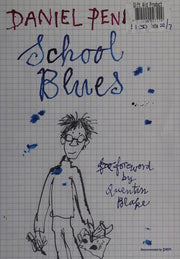 DANIEL PEN
School
Blues
foreword
by
Quentin
Blake